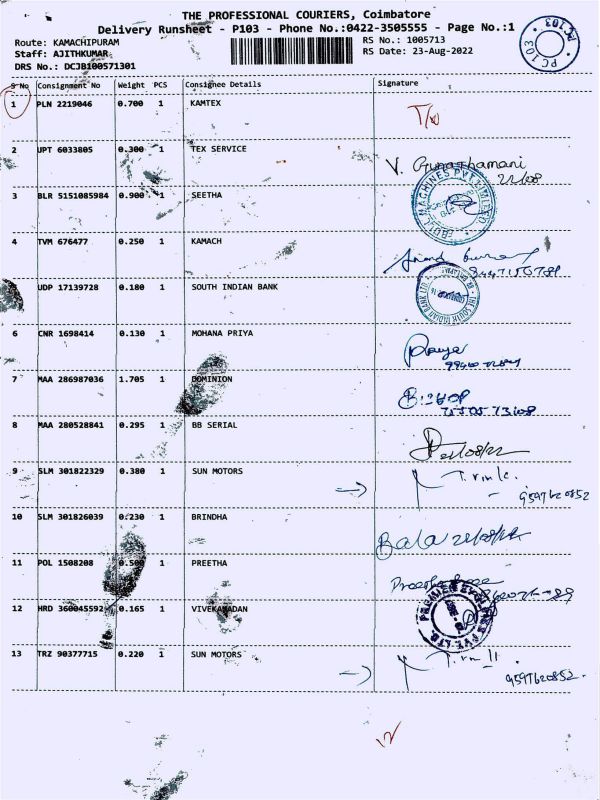 THE PROFESSIONAL COURIERS, Coimbatore
Delivery Runsheet - P103 - Phone No.:0422-3505555 - Page No.:1
Route: KAMACHIPURAM
Staff: AJITHKUMAR
DRS No.: DCJB100571301
RS No.: 1005713
RS Date: 23-Aug-2022
PC 103
S No Consignment No Weight PCS Consignee Details Signature
1 PLN 2219046 0.700 1 KAMTEX
2 UPT 6033805 0.300 1 TEX SERVICE V. Gunathamani
3 BLR 5151085984 0.900 1 SEETHA
4 TVM 676477 0.250 1 KAMACH
UDP 17139728 0.180 1 SOUTH INDIAN BANK
6 CNR 1698414 0.130 1 MOHANA PRIYA
7 MAA 286987036 1.705 1 DOMINION
8 MAA 280528841 0.295 1 BB SERIAL
9 SLM 301822329 0.380 1 SUN MOTORS 9597620852
10 SLM 301826039 0.230 1 BRINDHA Bala
11 POL 1508208 0.500 1 PREETHA
12 HRD 360045592 0.165 1 VIVEKANADAN
13 TRZ 90377715 0.220 1 SUN MOTORS 9597620852
12